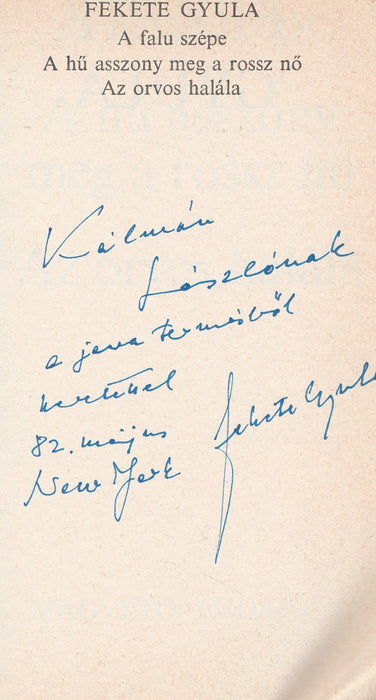 FEKETE GYULA
A falu szépe
A hű asszony meg a rossz nő
Az orvos halála
Kálmán
Lászlónak
a java termésből
szeretettel
82. május
New York
Fekete Gyula